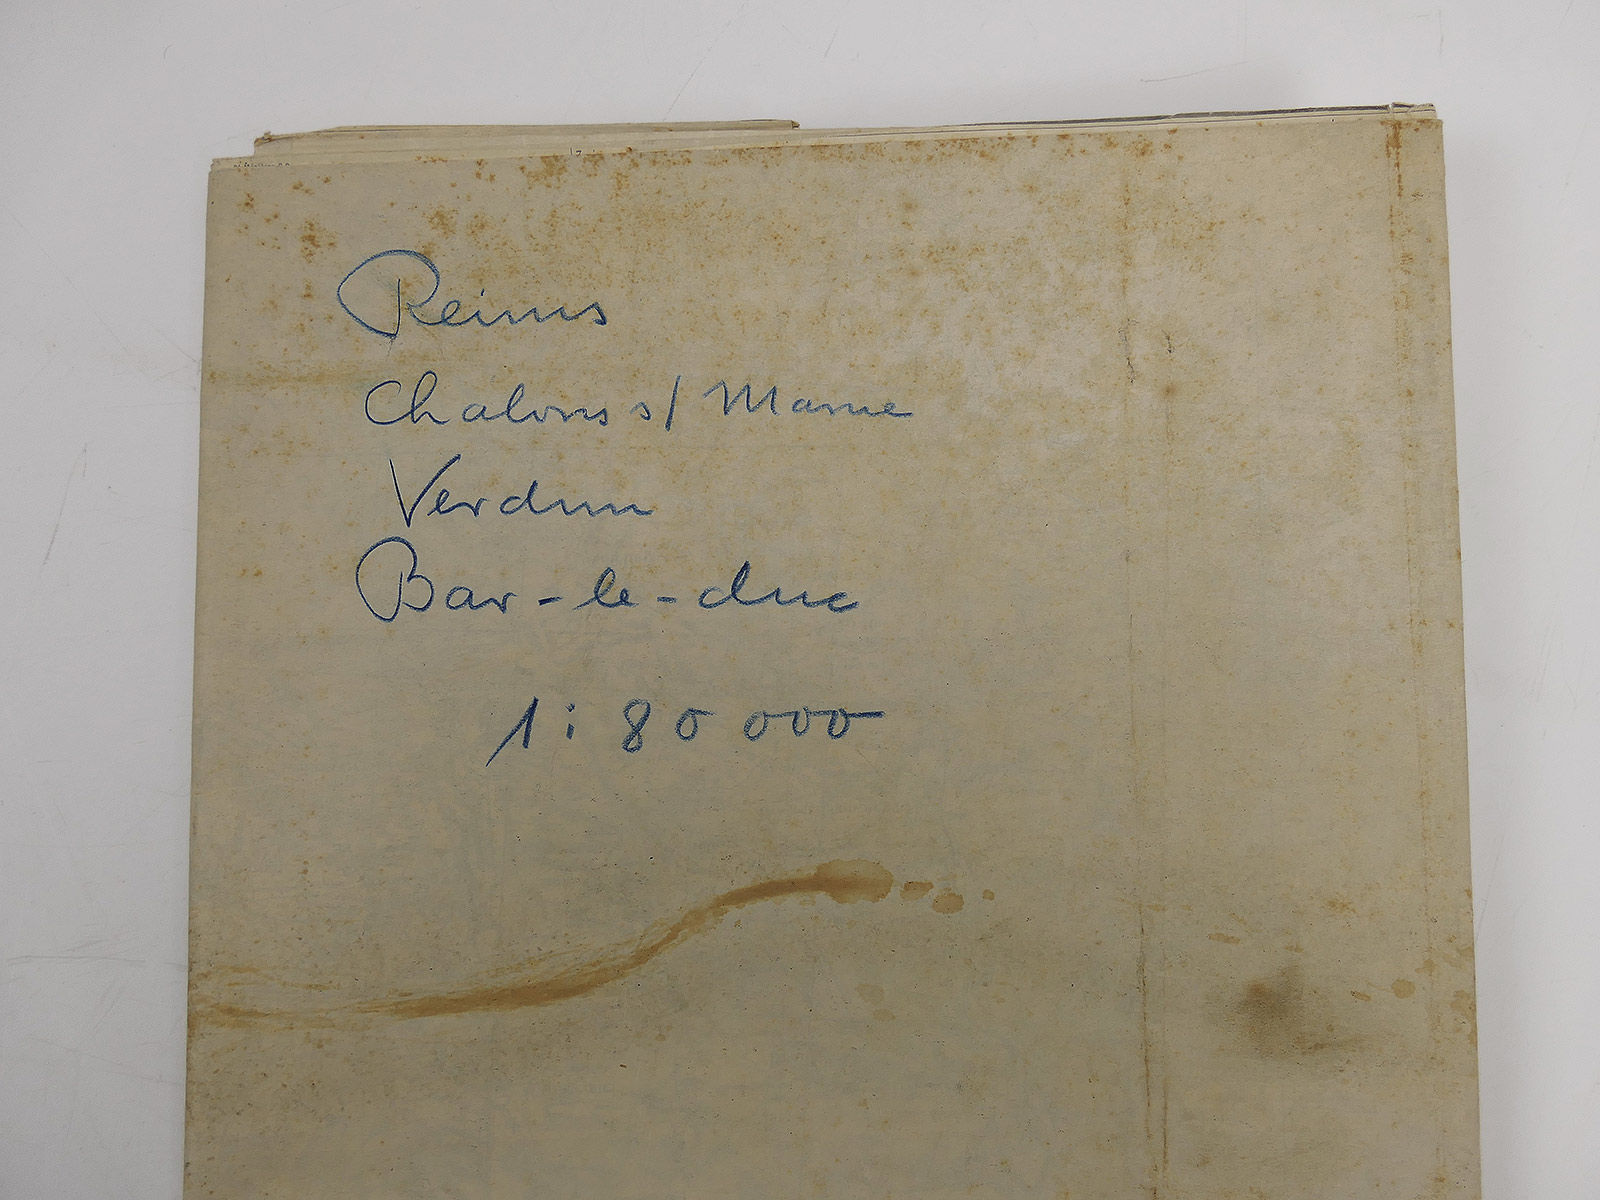 Reims
Chalons s/ Marne
Verdun
Bar-le-duc
1:80 000